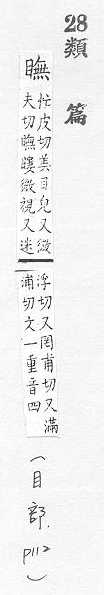 28類
篇
瞴
忙皮切美目皃又微
夫切瞴瞜微視又迷
浮切又罔甫切又滿
浦切文一重音四
(目部.
P112)